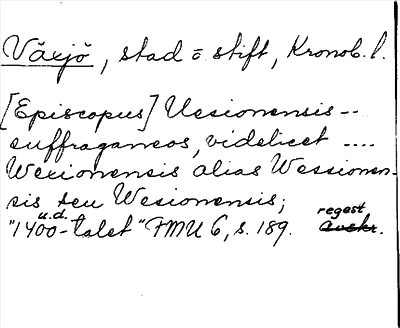 Växjö, stad o. stift, Kronob. l.
[Episcopus] Uesionensis --
suffraganeos, videlicet ....
Wexionensis alias Wessionen-
sis seu Wesionensis;
u.d. regest
"1400-talet" FMU 6, s. 189. avskr.